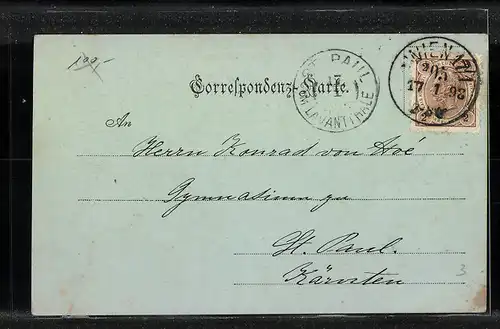 100,-
WIEN 17/1
17 1 98
ST. PAUL
17
1
IM LAVANTTHALE
Correspondenz-Karte.
An
Herrn Konrad von Hoé
Gymnasium zu
St. Paul.
Kärnten
3